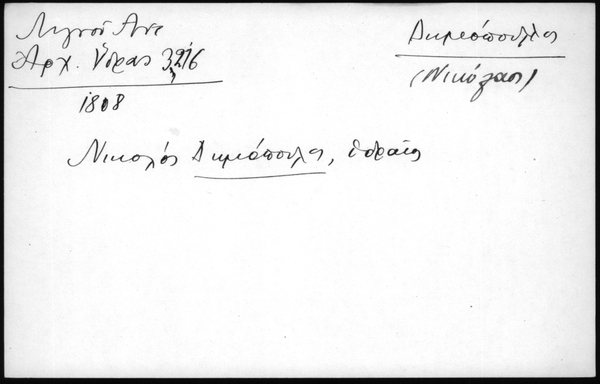 Λιγνού Αντ
Αρχ. Ύδρας 3,216
1808
Δημεόπουλλος
(Νικόλαος)
Νικολός Δημεόπουλος, υδραίος